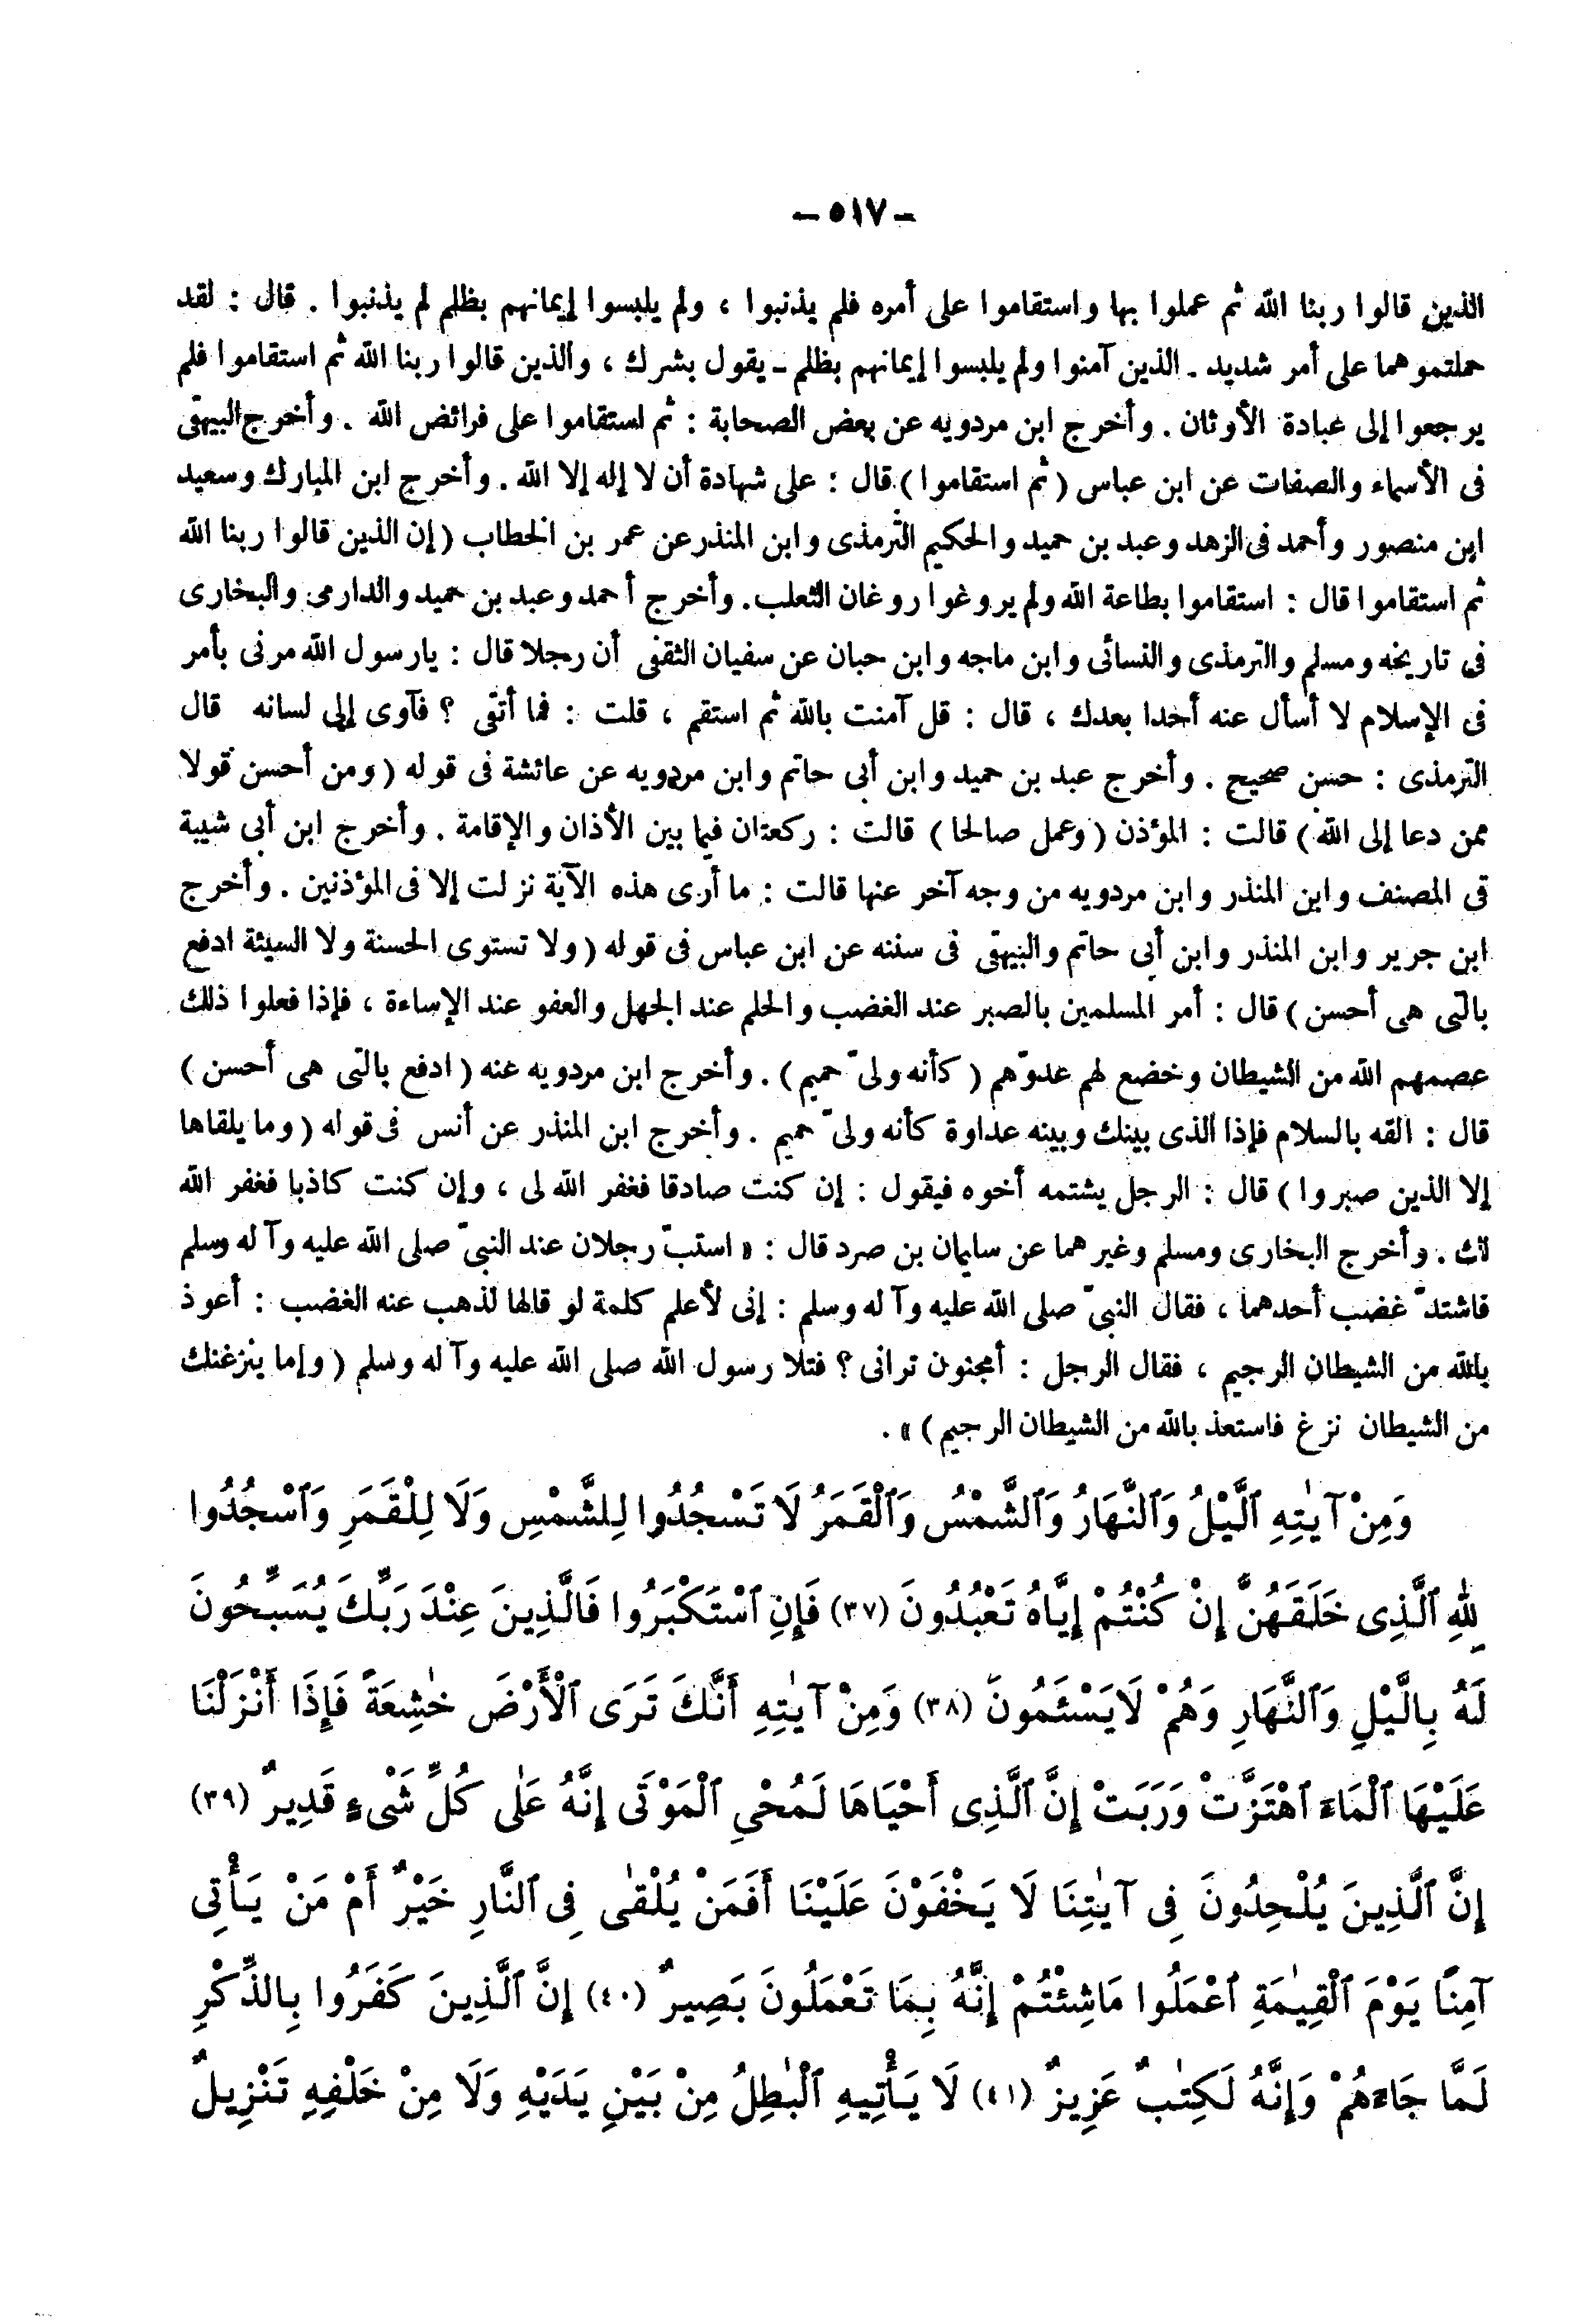 - ٥١٧ -
الذين قالوا ربنا الله ثم عملوا بها واستقاموا على أمره فلم يذنبوا ، ولم يلبسوا إيمانهم بظلم لم يذنبوا . قال : لقد
حملتموهما على أمر شديد . الذين آمنوا ولم يلبسوا إيمانهم بظلم - يقول بشرك ، والذين قالوا ربنا الله ثم استقاموا فلم
يرجعوا إلى عبادة الأوثان . وأخرج ابن مردويه عن بعض الصحابة : ثم استقاموا على فرائض الله . وأخرج البيهقى
فى الأسماء والصفات عن ابن عباس ( ثم استقاموا ) قال : على شهادة أن لا إله إلا الله . وأخرج ابن المبارك وسعيد
ابن منصور وأحمد فى الزهد وعبد بن حميد والحكيم الترمذى وابن المنذر عن عمر بن الخطاب ( إن الذين قالوا ربنا الله
ثم استقاموا قال : استقاموا بطاعة الله ولم يروغوا روغان الثعلب . وأخرج أحمد وعبد بن حميد والدارمى والبخارى
فى تاريخه ومسلم والترمذى والنسائى وابن ماجه وابن حبان عن سفيان الثقفى أن رجلا قال : يارسول الله مرنى بأمر
فى الإسلام لا أسأل عنه أحدا بعدك ، قال : قل آمنت بالله ثم استقم ، قلت : فما أتقى ؟ فآوى إلى لسانه قال
الترمذى : حسن صحيح . وأخرج عبد بن حميد وابن أبى حاتم وابن مردويه عن عائشة فى قوله ( ومن أحسن قولا
ممن دعا إلى الله ) قالت : المؤذن ( وعمل صالحا ) قالت : ركعتان فيما بين الأذان والإقامة . وأخرج ابن أبى شيبة
فى المصنف وابن المنذر وابن مردويه من وجه آخر عنها قالت : ما أرى هذه الآية نزلت إلا فى المؤذنين . وأخرج
ابن جرير وابن المنذر وابن أبى حاتم والبيهقى فى سننه عن ابن عباس فى قوله ( ولا تستوى الحسنة ولا السيئة ادفع
بالتى هى أحسن ) قال : أمر المسلمين بالصبر عند الغضب والحلم عند الجهل والعفو عند الإساءة ، فإذا فعلوا ذلك
عصمهم الله من الشيطان وخضع لهم عدوّهم ( كأنه ولىّ حميم ) . وأخرج ابن مردويه عنه ( ادفع بالتى هى أحسن )
قال : القه بالسلام فإذا الذى بينك وبينه عداوة كأنه ولىّ حميم . وأخرج ابن المنذر عن أنس فى قوله ( وما يلقاها
إلا الذين صبروا ) قال : الرجل يشتمه أخوه فيقول : إن كنت صادقا فغفر الله لى ، وإن كنت كاذبا فغفر الله
لك . وأخرج البخارى ومسلم وغيرهما عن سليمان بن صرد قال : « استبّ رجلان عند النبىّ صلى الله عليه وآله وسلم
فاشتدّ غضب أحدهما ، فقال النبىّ صلى الله عليه وآله وسلم : إنى لأعلم كلمة لو قالها لذهب عنه الغضب : أعوذ
بالله من الشيطان الرجيم ، فقال الرجل : أمجنون ترانى ؟ فتلا رسول الله صلى الله عليه وآله وسلم ( وإما ينزغنك
من الشيطان نزغ فاستعذ بالله من الشيطان الرجيم ) » .
وَمِنْ آيٰتِهِ ٱلَّيْلُ وَٱلنَّهَارُ وَٱلشَّمْسُ وَٱلْقَمَرُ لَا تَسْجُدُوا لِلشَّمْسِ وَلَا لِلْقَمَرِ وَٱسْجُدُوا
لِلّٰهِ ٱلَّذِى خَلَقَهُنَّ إِنْ كُنْتُمْ إِيَّاهُ تَعْبُدُونَ (٣٧) فَإِنِ ٱسْتَكْبَرُوا فَالَّذِينَ عِنْدَ رَبِّكَ يُسَبِّحُونَ
لَهُ بِالَّيْلِ وَٱلنَّهَارِ وَهُمْ لَايَسْئَمُونَ (٣٨) وَمِنْ آيٰتِهِ أَنَّكَ تَرَى ٱلْأَرْضَ خٰشِعَةً فَإِذَا أَنْزَلْنَا
عَلَيْهَا ٱلْمَاءَ ٱهْتَزَّتْ وَرَبَتْ إِنَّ ٱلَّذِى أَحْيَاهَا لَمُحْيِ ٱلْمَوْتَى إِنَّهُ عَلٰى كُلِّ شَىْءٍ قَدِيرٌ (٣٩)
إِنَّ ٱلَّذِينَ يُلْحِدُونَ فِى آيٰتِنَا لَا يَخْفَوْنَ عَلَيْنَا أَفَمَنْ يُلْقٰى فِى ٱلنَّارِ خَيْرٌ أَمْ مَنْ يَأْتِى
آمِنًا يَوْمَ ٱلْقِيٰمَةِ ٱعْمَلُوا مَاشِئْتُمْ إِنَّهُ بِمَا تَعْمَلُونَ بَصِيرٌ (٤٠) إِنَّ ٱلَّذِينَ كَفَرُوا بِالذِّكْرِ
لَمَّا جَاءَهُمْ وَإِنَّهُ لَكِتٰبٌ عَزِيزٌ (٤١) لَا يَأْتِيهِ ٱلْبٰطِلُ مِنْ بَيْنِ يَدَيْهِ وَلَا مِنْ خَلْفِهِ تَنْزِيلٌ